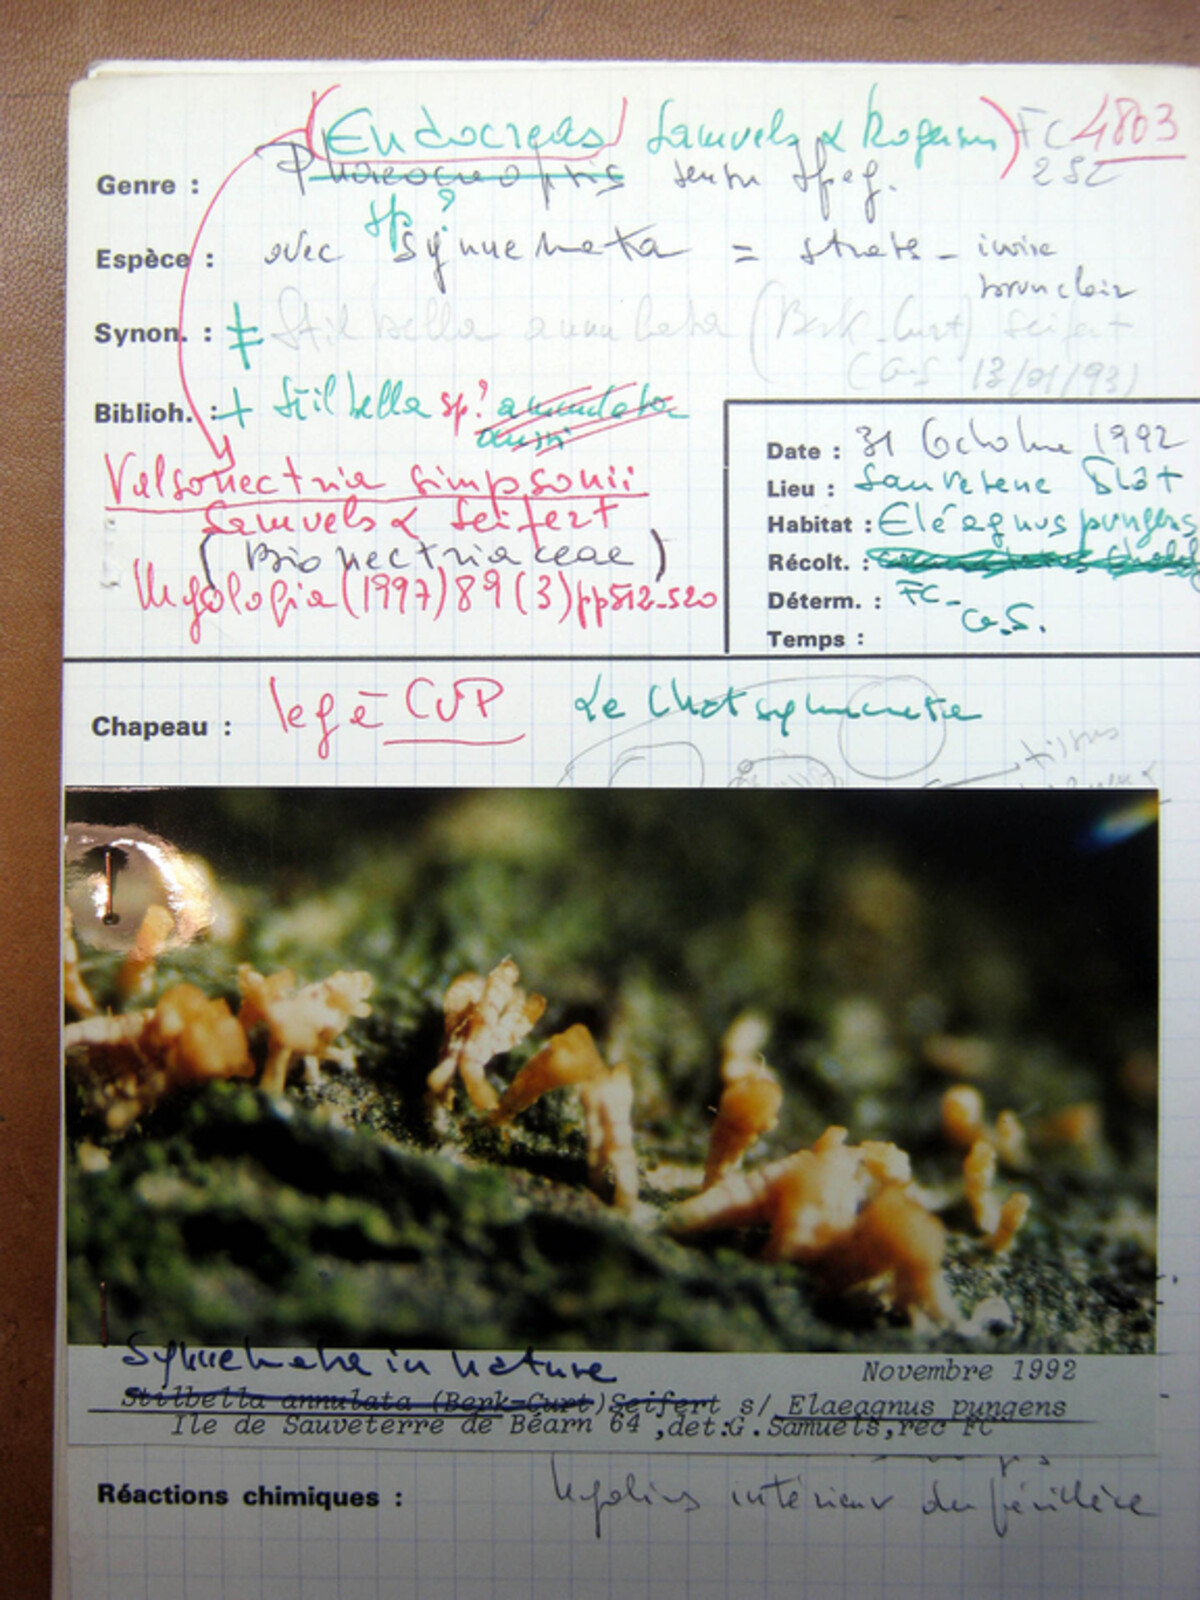 (Endocreas) Samuels & Rogerson) FC 4803
Genre : Phaeocreopsis sensu Speg. 2SC
sp ?
Espèce : avec synnemata = strats - ivoire
brun clair
Synon. : ≠ Stilbella annulata (Berk_Curt) Seifert
(G.S 13/01/93)
Biblioh. : + Stilbella sp? annulata
aussi
Valsonectria simpsonii
Samuels & Seifert
(Bionectriaceae)
Mycologia (1997) 89 (3) pp512-520
Date : 31 Octobre 1992
Lieu : Sauveterre
Habitat : Eléagnus pungens
Récolt. :
Déterm. : FC -
G.S.
Temps :
Chapeau : leg è CUP
tissus
Synnemata in nature
Novembre 1992
Stilbella annulata (Berk-Curt)Seifert s/ Elaeagnus pungens
Ile de Sauveterre de Béarn 64 ,det:G.Samuels,rec FC
Réactions chimiques : hyalins intérieur du périthèce